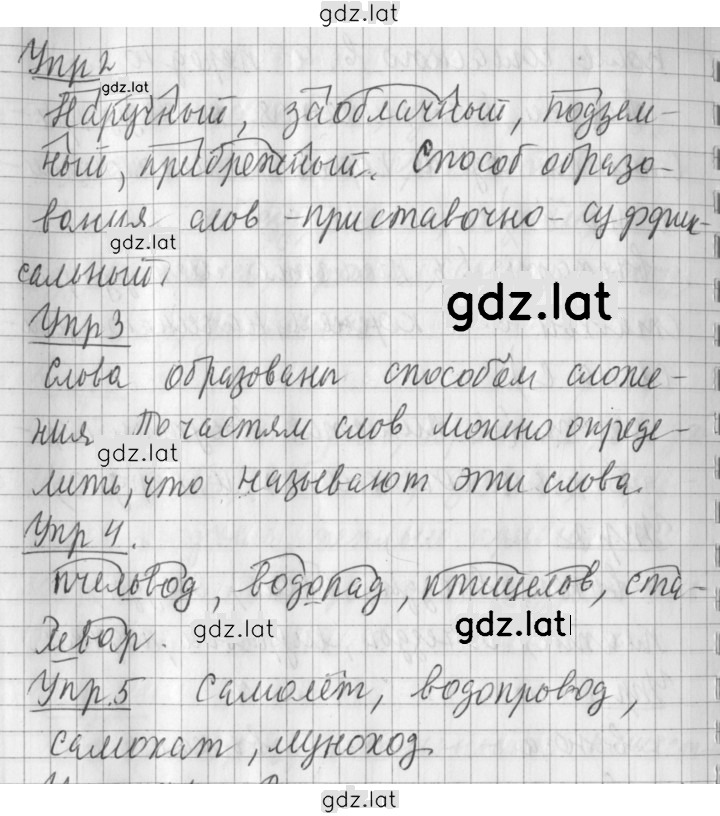 gdz.lat
Упр 2
gdz.lat
Наручный, заоблачный, подзем-
ный, прибрежный. Способ образо-
вания слов - приставочно - суффик-
gdz.lat
сальный,
gdz.lat
Упр 3
Слова образованы способом сложе-
ния. По частям слов можно опреде-
gdz.lat
лить, что называют эти слова.
Упр 4.
пчеловод, водопад, птицелов, ста-
левар.
gdz.lat
gdz.lat
Упр. 5 Самолёт, водопровод,
самокат, луноход.
gdz.lat